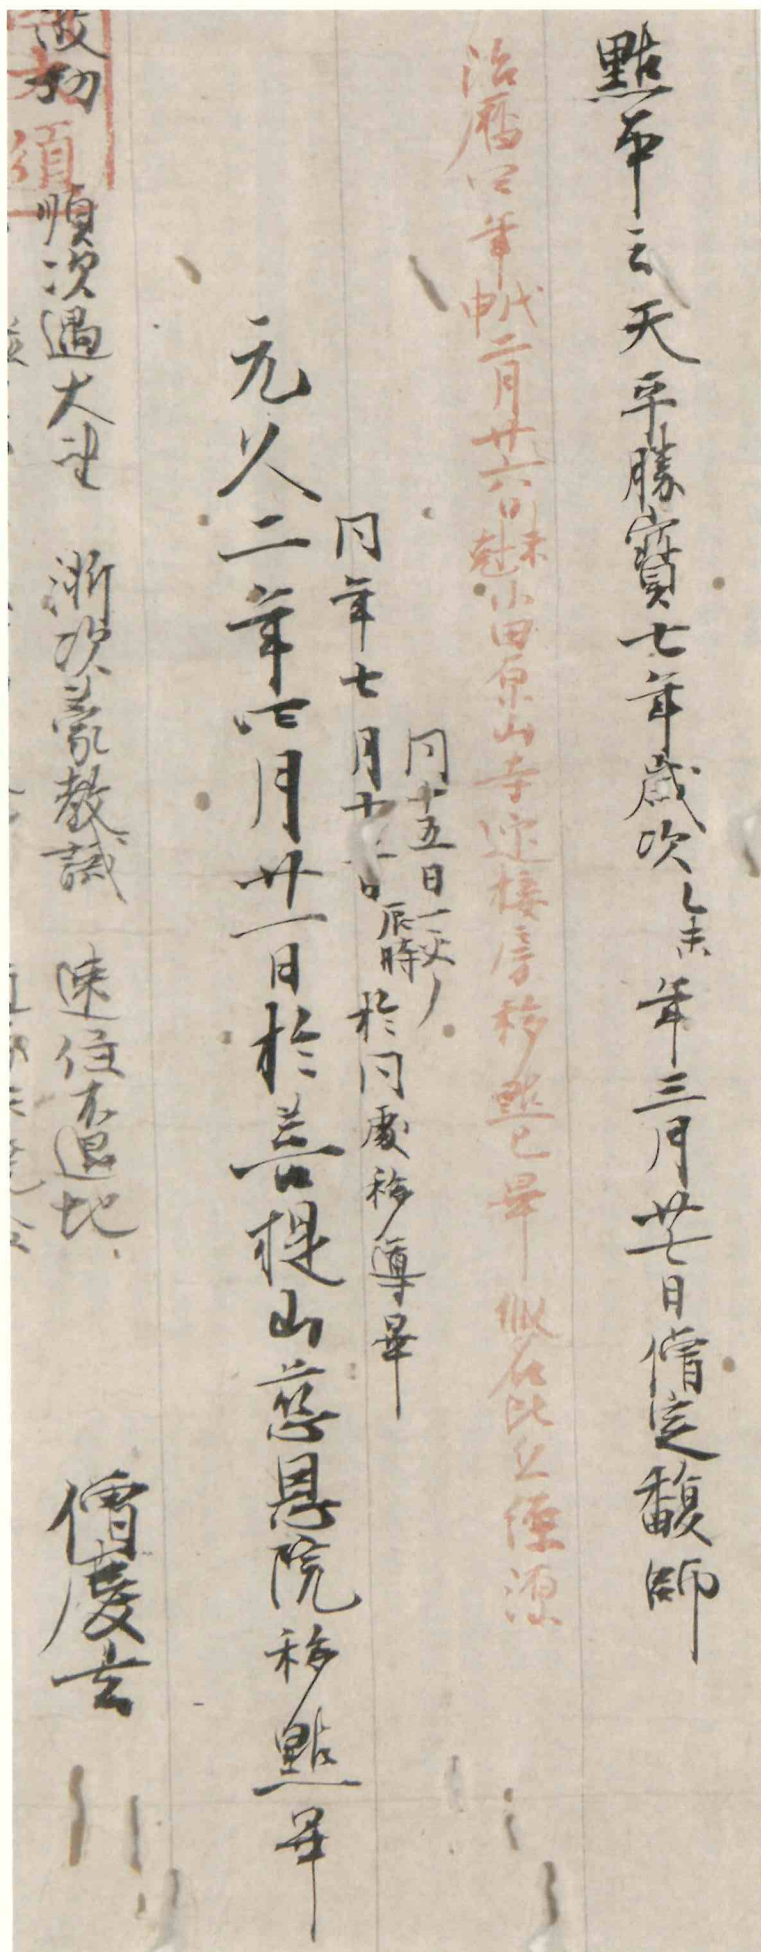 點本云天平勝寶七年歲次乙未年三月廿七日僧定馥師
治曆四年戊申二月廿六日未尅小田原山寺迎接房移點已畢 假名比丘經源
同十五日一交了
同年七月十一日辰時於同處移導畢
元久二年四月廿一日於菩提山慈恩院移點畢
順次遇大聖 漸次蒙教誡 速住不退地 僧慶玄